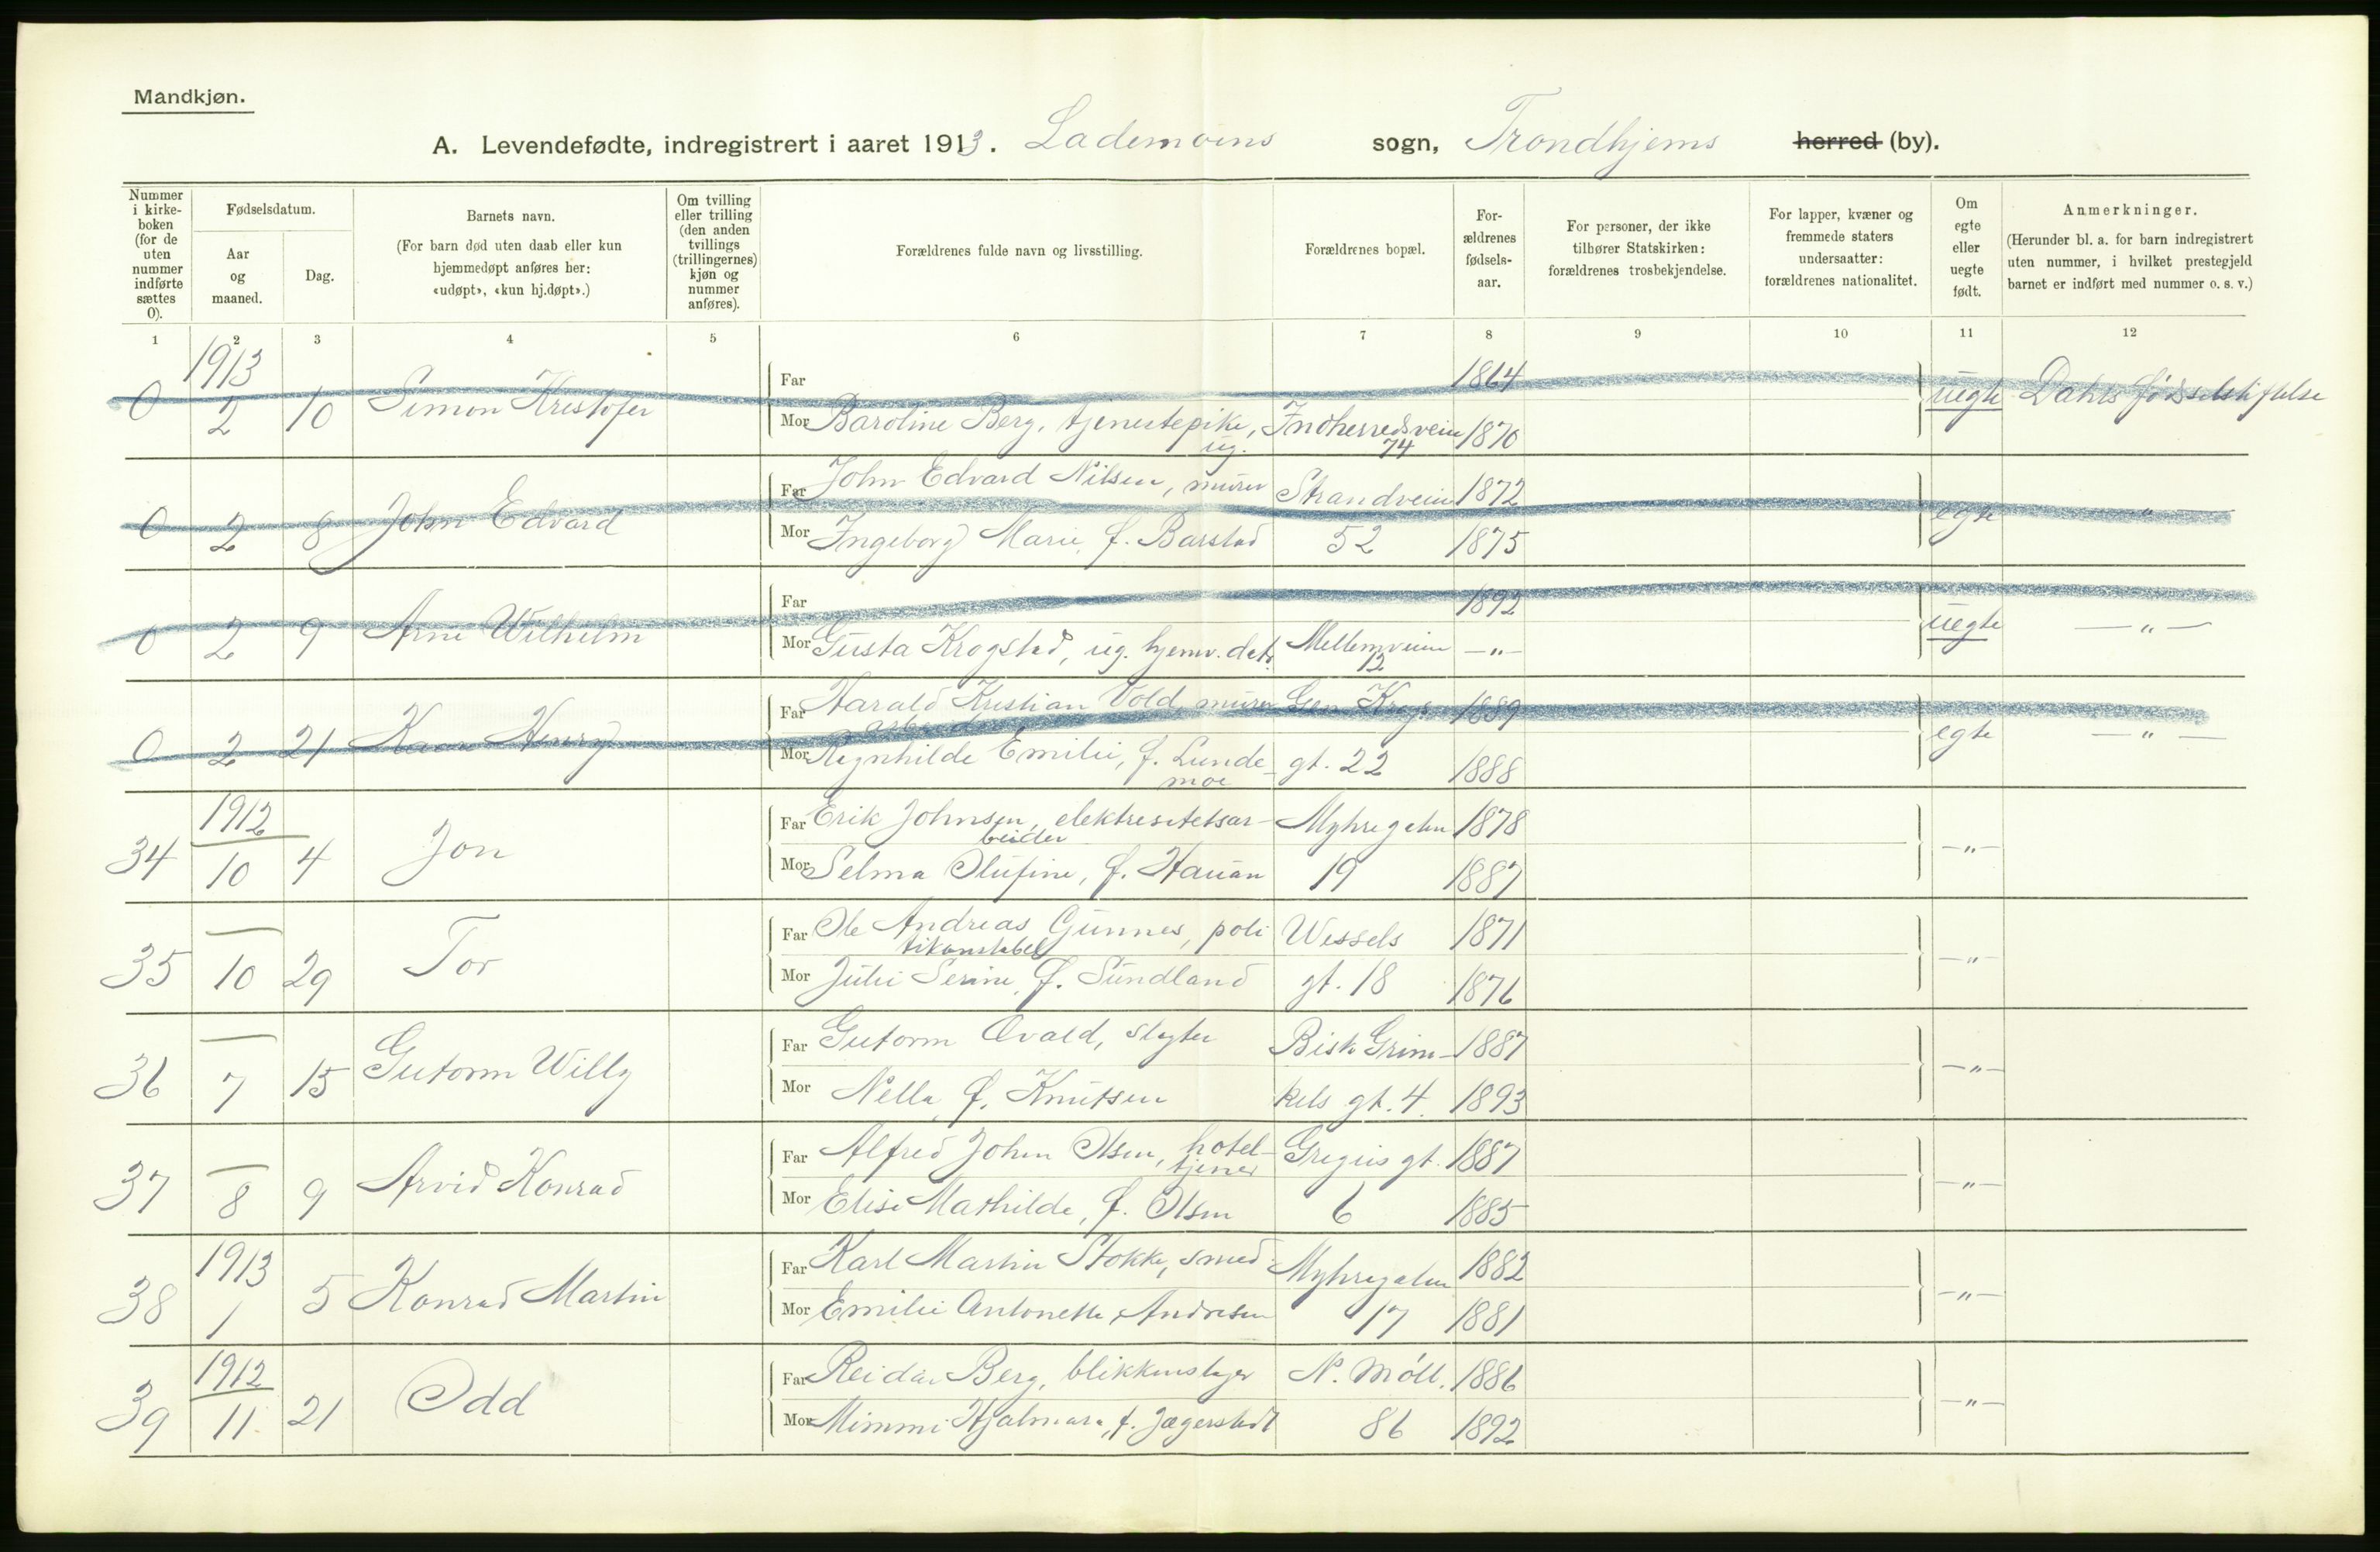 Mandkjøn.
A. Levendefødte, indregistrert i aaret 1913. Lademoens sogn, Trondhjems herred (by).
Nummer i kirkeboken (for de uten nummer indførte sættes 0).
Fødselsdatum.
Aar og maaned.
Dag.
Barnets navn.
(For barn død uten daab eller kun hjemmedøpt anføres her: «udøpt», «kun hj.døpt».)
Om tvilling eller trilling (den anden tvillings (trillingernes) kjøn og nummer anføres).
Forældrenes fulde navn og livsstilling.
Forældrenes bopæl.
For-ældrenes fødsels-aar.
For personer, der ikke tilhører Statskirken: forældrenes trosbekjendelse.
For lapper, kvæner og fremmede staters undersaatter: forældrenes nationalitet.
Om egte eller uegte født.
Anmerkninger.
(Herunder bl. a. for barn indregistrert uten nummer, i hvilket prestegjeld barnet er indført med nummer o. s. v.)
1 2 3 4 5 6 7 8 9 10 11 12
1913
0 2 10 Simon Kristofer Far 1864 uegte Dahls fødselsstiftelse
Mor Baroline Berg, tjenestepike, ug. Indherredsveien 74 1870
0 2 8 John Edvard Far John Edvard Nilsen, murer Strandveien 1872 egte - " -
Mor Ingeborg Marie, f. Barstad 52 1875
0 2 9 Arne Wilhelm Far 1892 uegte - " -
Mor Gusta Krogstad, ug. hjemv. datr. Mellemveien 12 - " -
0 2 21 Henry Far Harald Kristian Vold, murer Gen. Krogs 1889 egte - " -
Mor Regnhilde Emilie, f. Lundemoe gt. 22 1888
1912
34 10 4 Jon Far Erik Johnsen, elektresitetsar-beider Myhregaten 1878 - " -
Mor Selma Olufine, f. Hauan 19 1887
35 10 29 Tor Far Ole Andreas Gunnes, politikonstabel Wessels 1871 - " -
Mor Julie Serine, f. Sundland gt. 18 1876
36 7 15 Gutorm Willy Far Gutorm Qvald, slagter Bisk Grim- 1887 - " -
Mor Nella, f. Knutsen kels gt. 4. 1893
37 8 9 Arvid Konrad Far Alfred Johan Olsen, hotel-tjener Gregus gt. 1887 - " -
Mor Elise Mathilde, f. Olsen 6 1885
1913
38 1 5 Konrad Martin Far Karl Martin Stokke, smed Myhregaten 1882 - " -
Mor Emilie Antonette, f. Andresen 17 1881
1912
39 11 21 Odd Far Reidar Berg, blikkenslager N. Møll. 1886 - " -
Mor Mimmi Hjalmara, f. Jægerstedt 86 1892